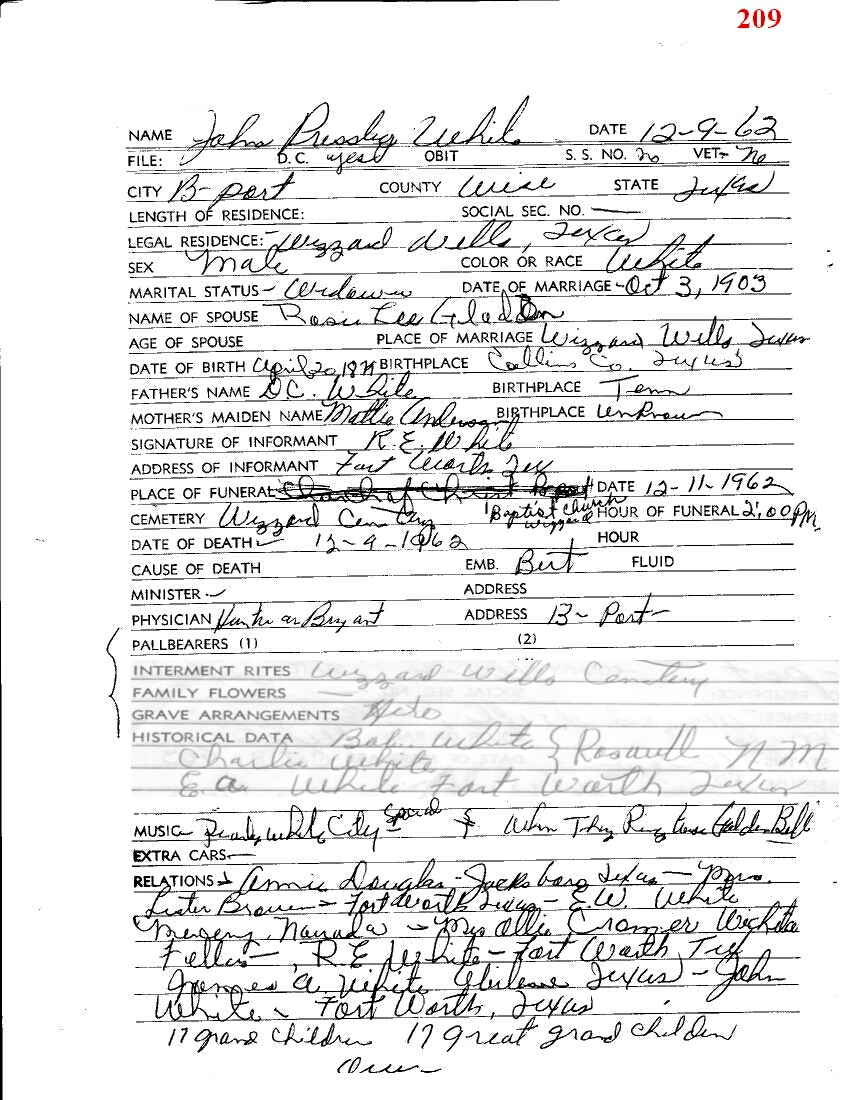 209
NAME John Pressley White DATE 12-9-62
FILE: D.C. yes OBIT S.S. NO. no VET- no
CITY B-port COUNTY Wise STATE Texas
LENGTH OF RESIDENCE: SOCIAL SEC. NO. —
LEGAL RESIDENCE:- Wizzard Wells, Texas
SEX Male COLOR OR RACE White
MARITAL STATUS - Widower DATE OF MARRIAGE - Oct 3, 1903
NAME OF SPOUSE Rosie Lee Gladden
AGE OF SPOUSE PLACE OF MARRIAGE Wizzard Wells Texas
DATE OF BIRTH April 20, BIRTHPLACE Collins Co. Texas
FATHER'S NAME D.C. White BIRTHPLACE Tenn
MOTHER'S MAIDEN NAME Mattie Anderson BIRTHPLACE unknown
SIGNATURE OF INFORMANT R.E. White
ADDRESS OF INFORMANT Fort Worth Tex
PLACE OF FUNERAL Church of Christ B-port DATE 12-11-1962
Baptist Church
CEMETERY Wizzard Wizzard HOUR OF FUNERAL 2:00 PM
DATE OF DEATH 12-9-1962 HOUR
CAUSE OF DEATH EMB. Bert FLUID
MINISTER ADDRESS
PHYSICIAN Bryant ADDRESS B-Port-
PALLBEARERS (1) (2)
INTERMENT RITES Wizzard Wells Cemetery
FAMILY FLOWERS —
GRAVE ARRANGEMENTS
HISTORICAL DATA White } Roswell N M
Charlie White
E.A. White Fort Worth Texas
MUSIC- Pearly White City Special & When They Ring Those Golden Bell
EXTRA CARS-
RELATIONS Annie Douglas - Jacksboro Texas - Mrs.
Lester Brown - Fort Worth Texas - E.W. White
- Mrs Ollie Cromer Wichita
Falls -, R.E. White - Fort Worth Tex
James A. White Abilene Texas - John
White - Fort Worth, Texas
17 grand children 17 great grand children
Over-